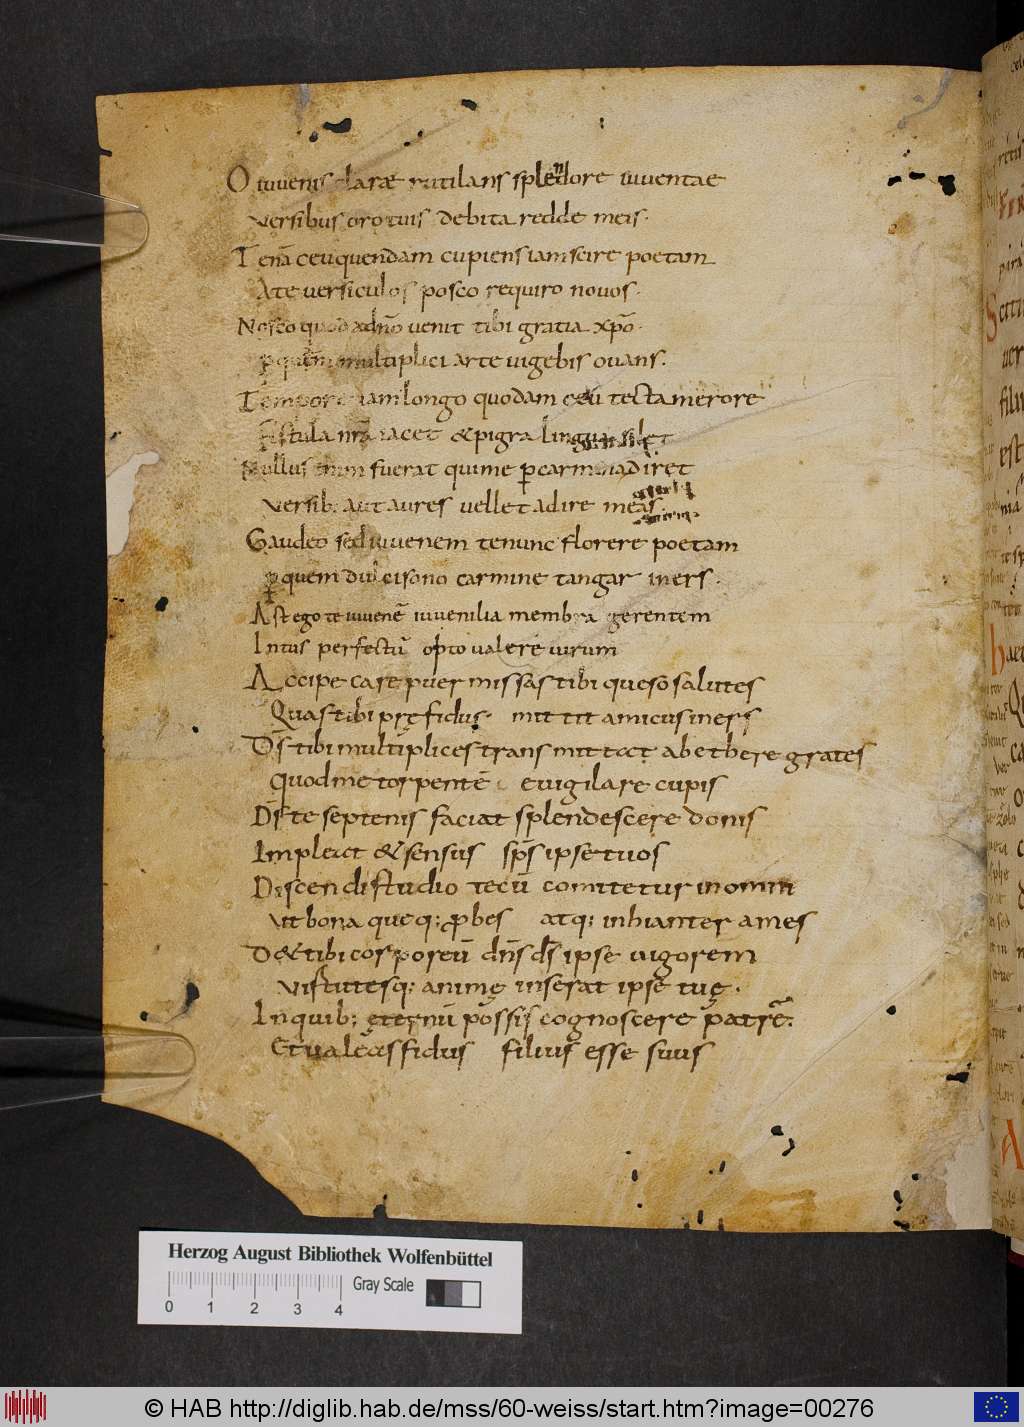 O iuvenis claræ rutilans splendore iuventae
versibus oro tuis debita redde meis·
Tenā ceu quendam cupiens iam scire poetam
A te versiculos posco requiro novos·
Nosco quod adnō venit tibi gratia xp̄o·
p quem multiplici arte vigebis ovans·
Tempore iam longo quodam ceu tecta merore
Fistula nr̄a iacet & pigra lingua silet
Nullus enim fuerat qui me p̄ carmina diret
versib; aut aures vellet adire meas
Gaudeo sed iuvenem te nunc florere poetam
p̄ quem dulcisono carmine tangar iners·
Ast ego te iuvenē iuvenilia membra gerentem
Intus perfectū opto valere virum
Accipe care puer missas tibi queso salutes
Quas tibi pręfidus· mittit amicus iners
D̄s tibi multiplices transmittat ab ethere grates
Quod me torpentē evigilare cupis
D̄s te septenis faciat splendescere donis
Impleat & sensus sp̄s ipse tuos
Discendi studio tecū comitetur in omni
Ut bona queq; probes atq; inhianter ames
D& tibi corporeū dn̄s d̄s ipse vigorem
Virtutesq; animę inserat ipse tuę·
In quib; ęternū possis cognoscere patrē·
Et valeas fidus filius esse suus
Herzog August Bibliothek Wolfenbüttel
Gray Scale
0 1 2 3 4
© HAB http://diglib.hab.de/mss/60-weiss/start.htm?image=00276